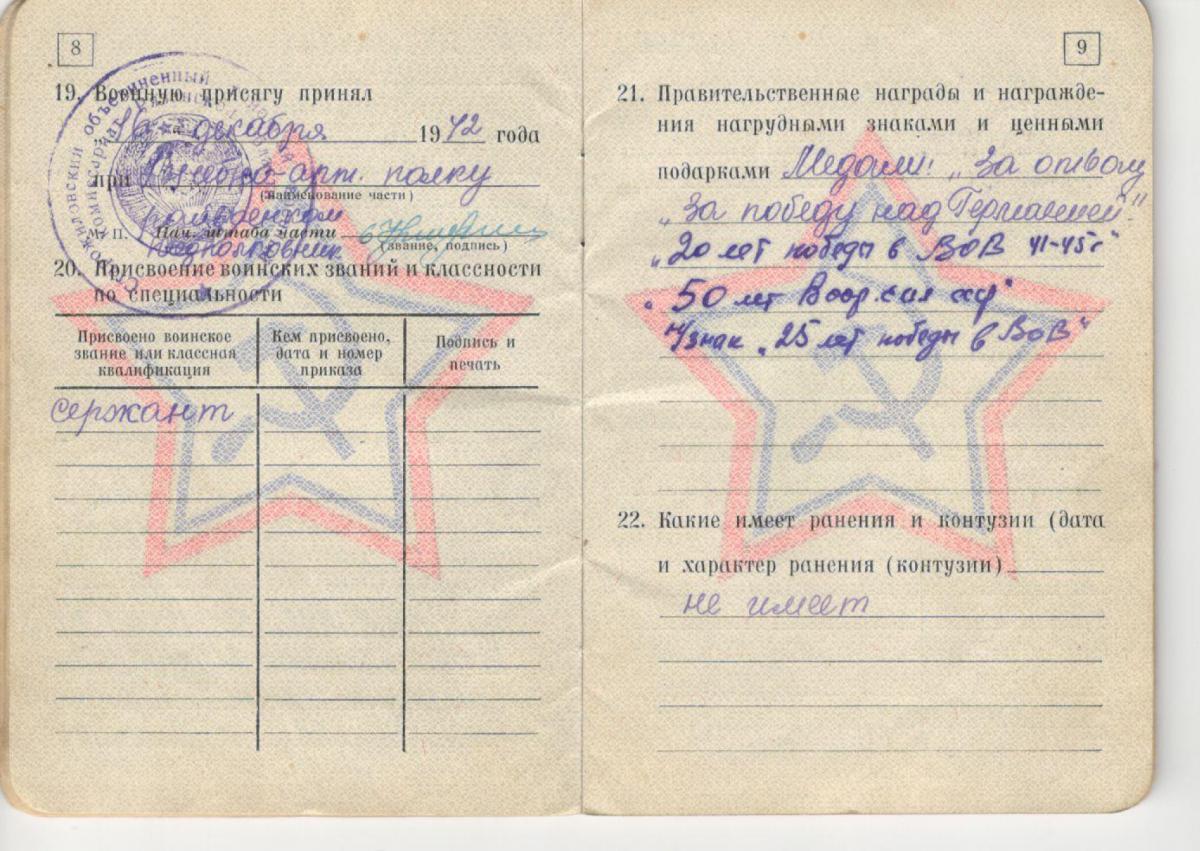 8
19. Военную присягу принял
декабря 1942 года
при арт. полку
(наименование части)
райвоенком
М. П. Нач. штаба части
подполковник (звание, подпись)
20. Присвоение воинских званий и классности
по специальности
Присвоено воинское звание или классная квалификация
Кем присвоено, дата и номер приказа
Подпись и печать
сержант
9
21. Правительственные награды и награжде-
ния нагрудными знаками и ценными
подарками Медали: „За отвагу
„За победу над Германией"
„20 лет победы в ВОВ 41-45г"
„50 лет Воор. сил
Н/знак „25 лет победы в ВОВ"
22. Какие имеет ранения и контузии (дата
и характер ранения (контузии)
не имеет